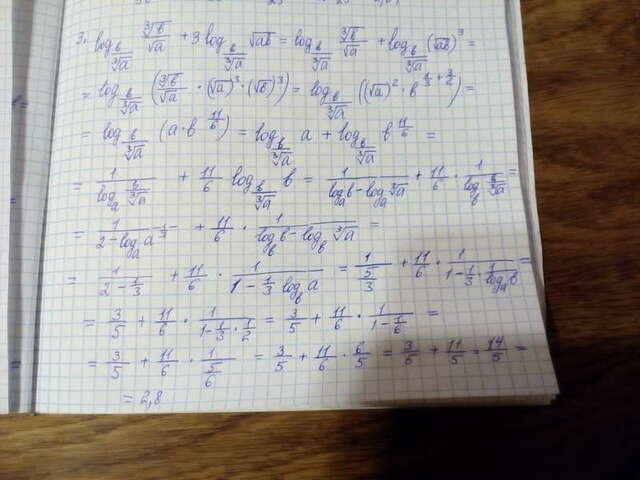 3. log_{b/∛a} ∛b/√a + 3 log_{b/∛a} √ab = log_{b/∛a} ∛b/√a + log_{b/∛a} (√ab)³ =
= log_{b/∛a} (∛b/√a · (√a)³ · (√b)³) = log_{b/∛a} ((√a)² · b^{1/3 + 3/2}) =
= log_{b/∛a} (a · b^{11/6}) = log_{b/∛a} a + log_{b/∛a} b^{11/6} =
= 1/(log_a b/∛a) + 11/6 log_{b/∛a} b = 1/(log_a b - log_a ∛a) + 11/6 · 1/(log_b b/∛a) =
= 1/(2 - log_a a^{1/3}) + 11/6 · 1/(log_b b - log_b ∛a) =
= 1/(2 - 1/3) + 11/6 · 1/(1 - 1/3 log_b a) = 1/(5/3) + 11/6 · 1/(1 - 1/3 · 1/(log_a b)) =
= 3/5 + 11/6 · 1/(1 - 1/3 · 1/2) = 3/5 + 11/6 · 1/(1 - 1/6) =
= 3/5 + 11/6 · 1/(5/6) = 3/5 + 11/6 · 6/5 = 3/5 + 11/5 = 14/5 =
= 2,8